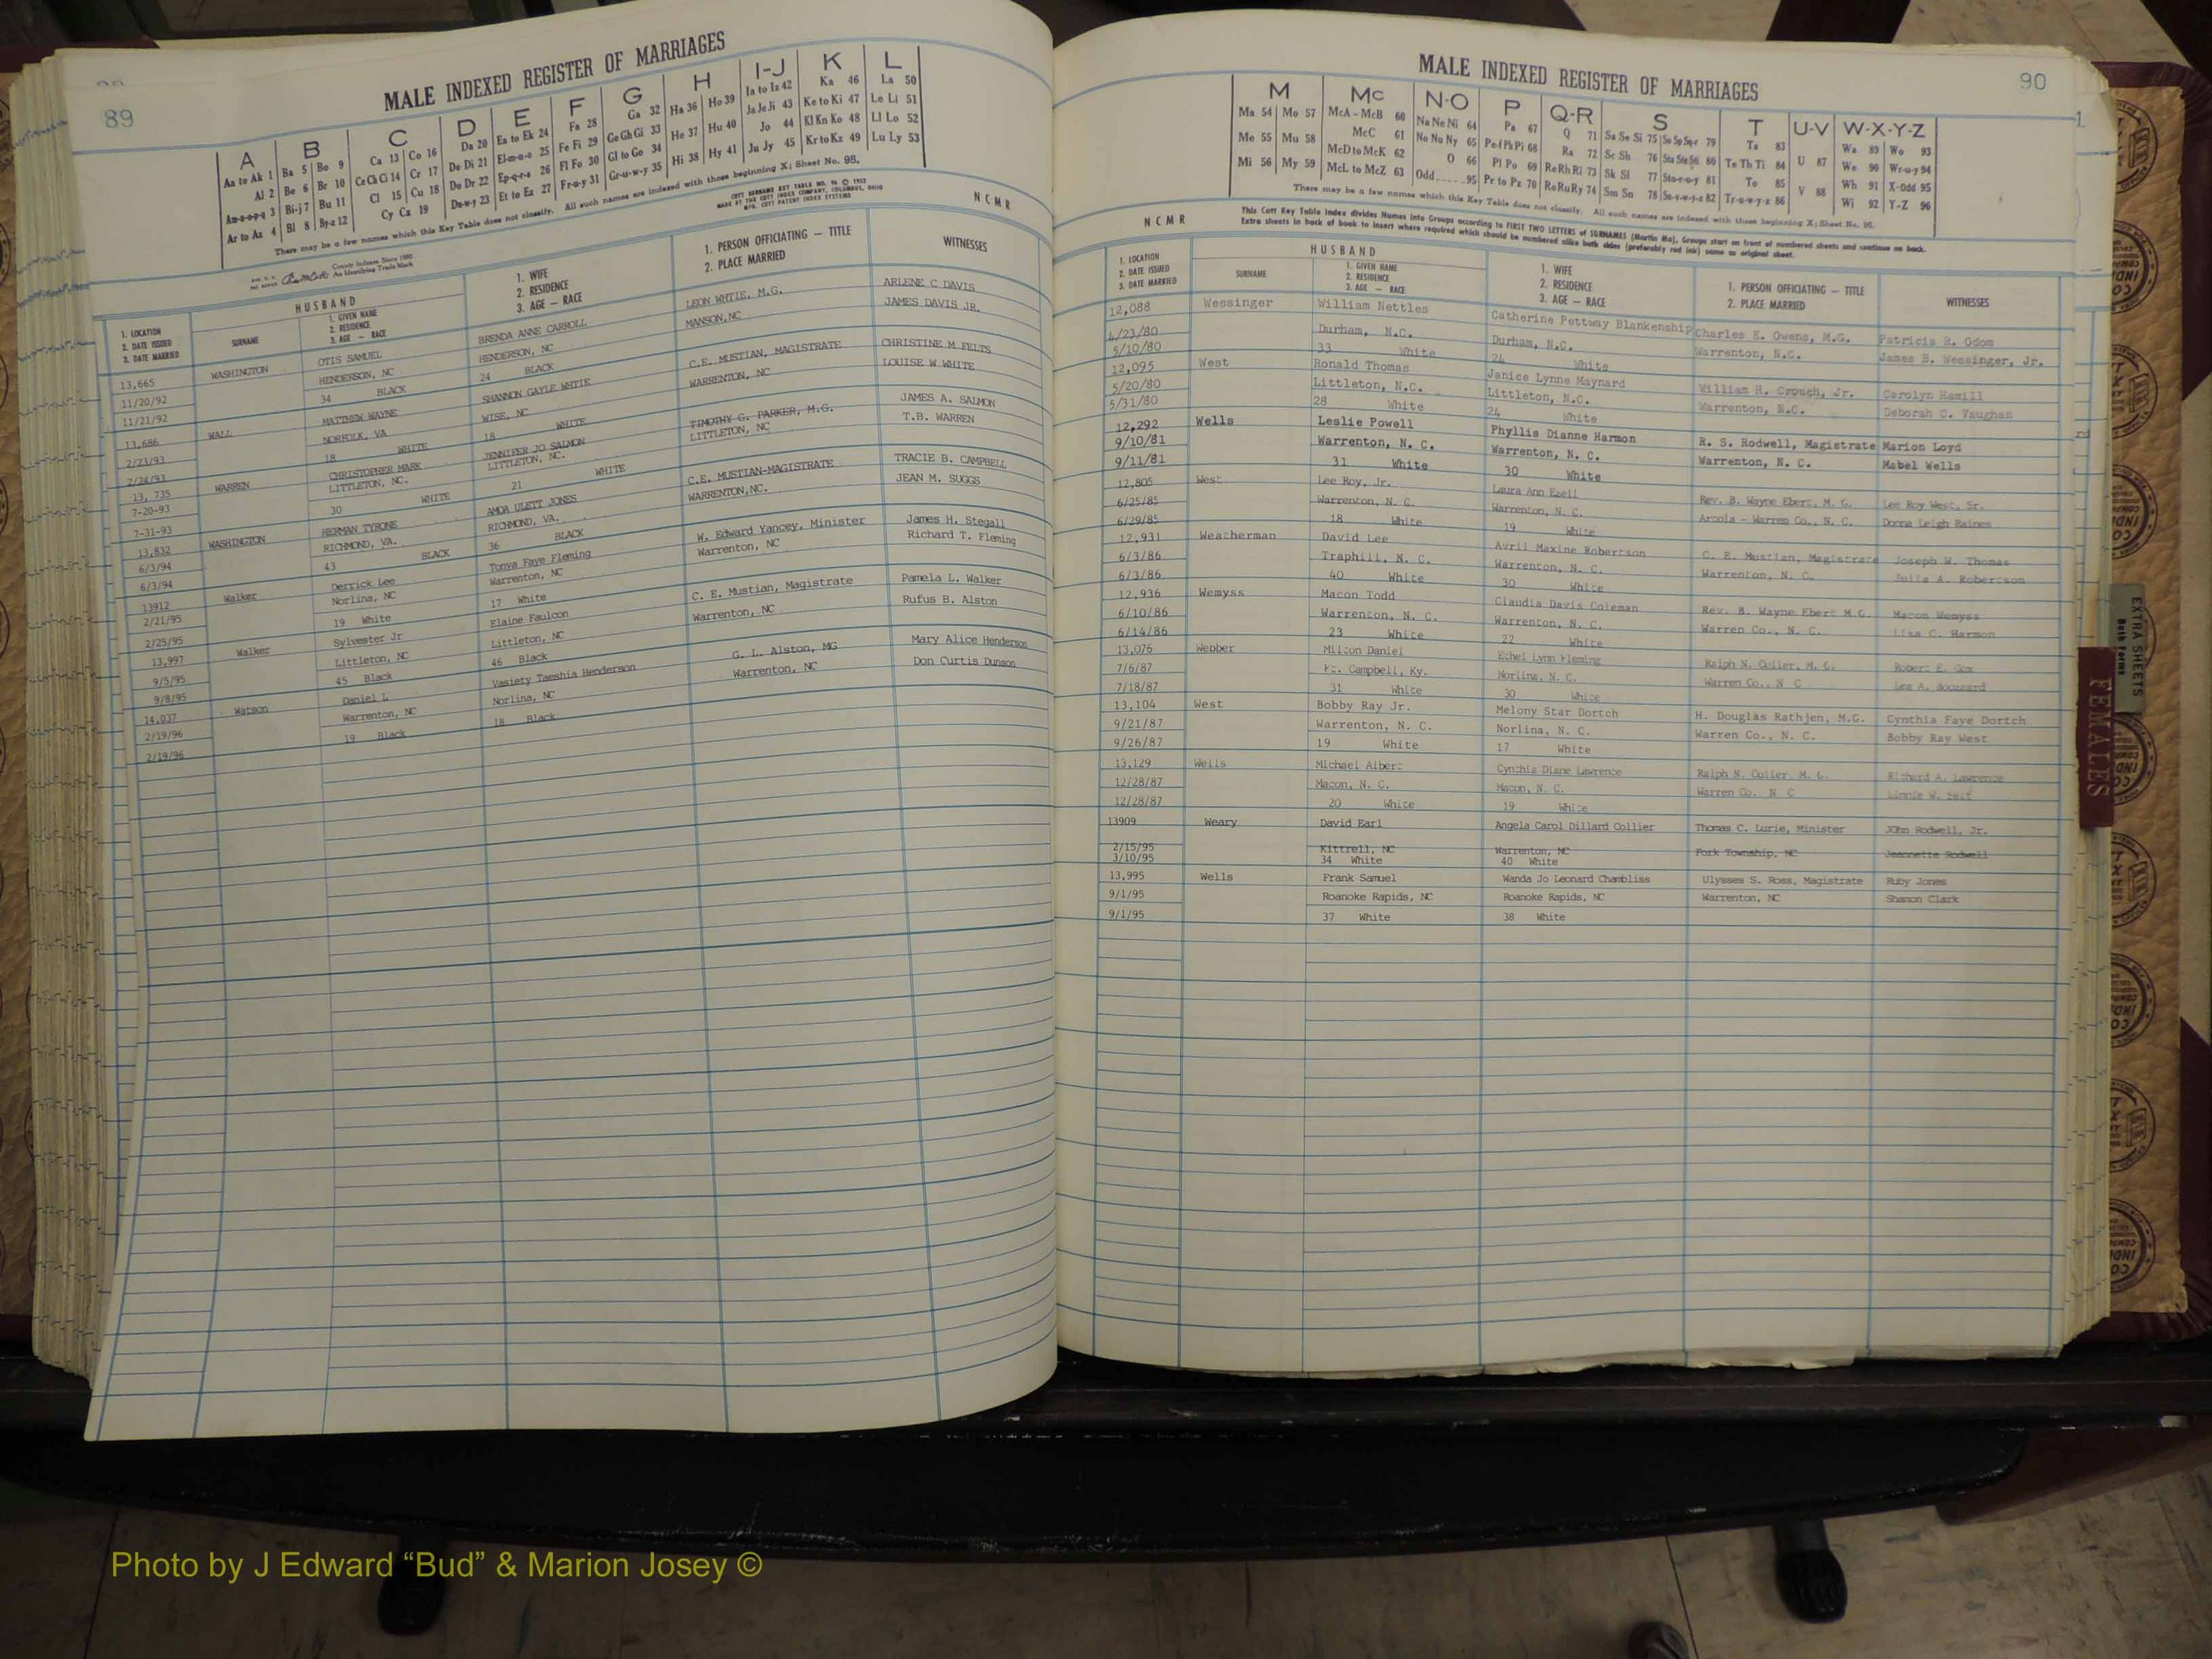 89
MALE INDEXED REGISTER OF MARRIAGES
A B C D E F G H I-J K L
Aa to Ak 1 Ba 5 Bo 9 Ca 13 Co 16 Da 20 Ea to Ek 24 Fa 28 Ga 32 Ha 36 Ho 39 Ia to Iz 42 Ka 46 La 50
Al 2 Be 6 Br 10 Ce Ch Ci 14 Cr 17 De Di 21 El-m-n-o 25 Fe Fi 29 Ge Gh Gi 33 He 37 Hu 40 Ja Je Ji 43 Ke to Ki 47 Le Li 51
Am-n-o-p-q 3 Bi-j 7 Bu 11 Cl 15 Cu 18 Do Dr 22 Ep-q-r-s 26 Fl Fo 30 Gl to Go 34 Hi 38 Hy 41 Jo 44 Kl Kn Ko 48 Ll Lo 52
Ar to Az 4 Bl 8 By-z 12 Cy Cz 19 Du-w-y 23 Et to Ez 27 Fr-u-y 31 Gr-u-w-y 35 Ju Jy 45 Kr to Kz 49 Lu Ly 53
There may be a few names which this Key Table does not classify. All such names are indexed with those beginning X; Sheet No. 95.
COTT SURNAME KEY TABLE NO. 96 © 1952
MADE BY THE COTT INDEX COMPANY, COLUMBUS, OHIO
MFG. COTT PATENT INDEX SYSTEMS
NCMR
County Indexes Since 1888
An Identifying Trade Mark
1. LOCATION
2. DATE ISSUED
3. DATE MARRIED
HUSBAND
SURNAME
1. GIVEN NAME
2. RESIDENCE
3. AGE — RACE
1. WIFE
2. RESIDENCE
3. AGE — RACE
1. PERSON OFFICIATING — TITLE
2. PLACE MARRIED
WITNESSES
13,665 WASHINGTON OTIS SAMUEL BRENDA ANNE CARROLL LEON WHTIE, M.G. ARLENE C DAVIS
11/20/92 HENDERSON, NC HENDERSON, NC MANSON,NC JAMES DAVIS JR.
11/21/92 34 BLACK 24 BLACK
13,686 WALL MATTHEW WAYNE SHANNON GAYLE WHTIE C.E. MUSTIAN, MAGISTRATE CHRISTINE M FELTS
2/23/93 NORFOLK, VA WISE, NC WARRENTON, NC LOUISE W WHITE
2/24/93 18 WHITE 18 WHITE
13, 735 WARREN CHRISTOPHER MARK JENNIFER JO SALMON TIMOTHY G. PARKER, M.G. JAMES A. SALMON
7-20-93 LITTLETON, NC. LITTLETON, NC. LITTLETON, NC T.B. WARREN
7-31-93 30 WHITE 21 WHITE
13,832 WASHINGTON HERMAN TYRONE AMOA ULETT JONES C.E. MUSTIAN-MAGISTRATE TRACIE B. CAMPBELL
6/3/94 RICHMOND, VA. RICHMOND, VA. WARRENTON,NC. JEAN M. SUGGS
6/3/94 43 BLACK 36 BLACK
13912 Walker Derrick Lee Tonya Faye Fleming W. Edward Yancey, Minister James H. Stegall
2/21/95 Norlina, NC Warrenton, NC Warrenton, NC Richard T. Fleming
2/25/95 19 White 17 White
13,997 Walker Sylvester Jr Elaine Faulcon C. E. Mustian, Magistrate Pamela L. Walker
9/5/95 Littleton, NC Littleton, NC Warrenton, NC Rufus B. Alston
9/8/95 45 Black 46 Black
14,037 Watson Daniel L Vasiety Taeshia Henderson G. L. Alston, MG Mary Alice Henderson
2/19/96 Warrenton, NC Norlina, NC Warrenton, NC Don Curtis Dunson
2/19/96 19 Black 18 Black
90
MALE INDEXED REGISTER OF MARRIAGES
M Mc N-O P Q-R S T U-V W-X-Y-Z
Ma 54 Mo 57 McA - McB 60 Na Ne Ni 64 Pa 67 Q 71 Sa Se Si 75 So Sp Sq-r 79 Ta 83 Wa 89 Wo 93
Me 55 Mu 58 McC 61 No Nu Ny 65 Pe-f Ph Pi 68 Ra 72 Sc Sh 76 Sta Ste Sti 80 Te Th Ti 84 U 87 We 90 Wr-u-y 94
Mi 56 My 59 McD to McK 62 O 66 Pl Po 69 Re Rh Ri 73 Sk Sl 77 Sto-r-u-y 81 To 85 Wh 91 X-Odd 95
McL to McZ 63 Odd 95 Pr to Pz 70 Ro Ru Ry 74 Sm Sn 78 Su-v-w-y-z 82 Tr-u-w-y-z 86 V 88 Wi 92 Y-Z 96
There may be a few names which this Key Table does not classify. All such names are indexed with those beginning X; Sheet No. 95.
NCMR
This Cott Key Table Index divides Names into Groups according to FIRST TWO LETTERS of SURNAMES (Martin Ma), Groups start on front of numbered sheets and continue on back.
Extra sheets in back of book to insert where required which should be numbered alike both sides (preferably red ink) same as original sheet.
1. LOCATION
2. DATE ISSUED
3. DATE MARRIED
HUSBAND
SURNAME
1. GIVEN NAME
2. RESIDENCE
3. AGE — RACE
1. WIFE
2. RESIDENCE
3. AGE — RACE
1. PERSON OFFICIATING — TITLE
2. PLACE MARRIED
WITNESSES
12,088 Wessinger William Nettles Catherine Pettway Blankenship Charles E. Owens, M.G. Patricia R. Odom
4/23/80 Durham, N.C. Durham, N.C. Warrenton, N.C. James B. Wessinger, Jr.
5/10/80 33 White 24 White
12,095 West Ronald Thomas Janice Lynne Maynard William H. Crouch, Jr. Carolyn Hamill
5/20/80 Littleton, N.C. Littleton, N.C. Warrenton, N.C. Deborah C. Vaughan
5/31/80 28 White 24 White
12,292 Wells Leslie Powell Phyllis Dianne Harmon R. S. Rodwell, Magistrate Marion Loyd
9/10/81 Warrenton, N. C. Warrenton, N. C. Warrenton, N. C. Mabel Wells
9/11/81 31 White 30 White
12,805 West Lee Roy, Jr. Laura Ann Ezell Rev. B. Wayne Ebert, M. G. Lee Roy West, Sr.
6/25/85 Warrenton, N. C. Warrenton, N. C. Arcola - Warren Co., N. C. Donna Leigh Raines
6/29/85 18 White 19 White
12,931 Weatherman David Lee Avril Maxine Robertson C. E. Mustian, Magistrate Joseph W. Thomas
6/3/86 Traphill, N. C. Warrenton, N. C. Warrenton, N. C. Julia A. Robertson
6/3/86 40 White 30 White
12,936 Wemyss Macon Todd Claudia Davis Coleman Rev. B. Wayne Ebert M.G. Macon Wemyss
6/10/86 Warrenton, N. C. Warrenton, N. C. Warren Co., N. C. Lisa C. Harmon
6/14/86 23 White 22 White
13,076 Webber Milton Daniel Ethel Lynn Fleming Ralph N. Culler, M. G. Robert E. Cox
7/6/87 Ft. Campbell, Ky. Norlina, N. C. Warren Co., N C Lea A.
7/18/87 31 White 30 White
13,104 West Bobby Ray Jr. Melony Star Dortch H. Douglas Rathjen, M.G. Cynthia Faye Dortch
9/21/87 Warrenton, N. C. Norlina, N. C. Warren Co., N. C. Bobby Ray West
9/26/87 19 White 17 White
13,129 Wells Michael Albert Cynthia Diane Lawrence Ralph N. Culler, M. G. Richard A. Lawrence
12/28/87 Macon, N. C. Macon, N. C. Warren Co. N C
12/28/87 20 White 19 White
13909 Weary David Earl Angela Carol Dillard Collier Thomas C. Lurie, Minister JOhn Rodwell, Jr.
2/15/95 Kittrell, NC Warrenton, NC Fork Township, NC Jeannette Rodwell
3/10/95 34 White 40 White
13,995 Wells Frank Samuel Wanda Jo Leonard Chambliss Ulysses S. Ross, Magistrate Ruby Jones
9/1/95 Roanoke Rapids, NC Roanoke Rapids, NC Warrenton, NC Shanon Clark
9/1/95 37 White 38 White
EXTRA SHEETS
Both Forms
FEMALES
Photo by J Edward “Bud” & Marion Josey ©